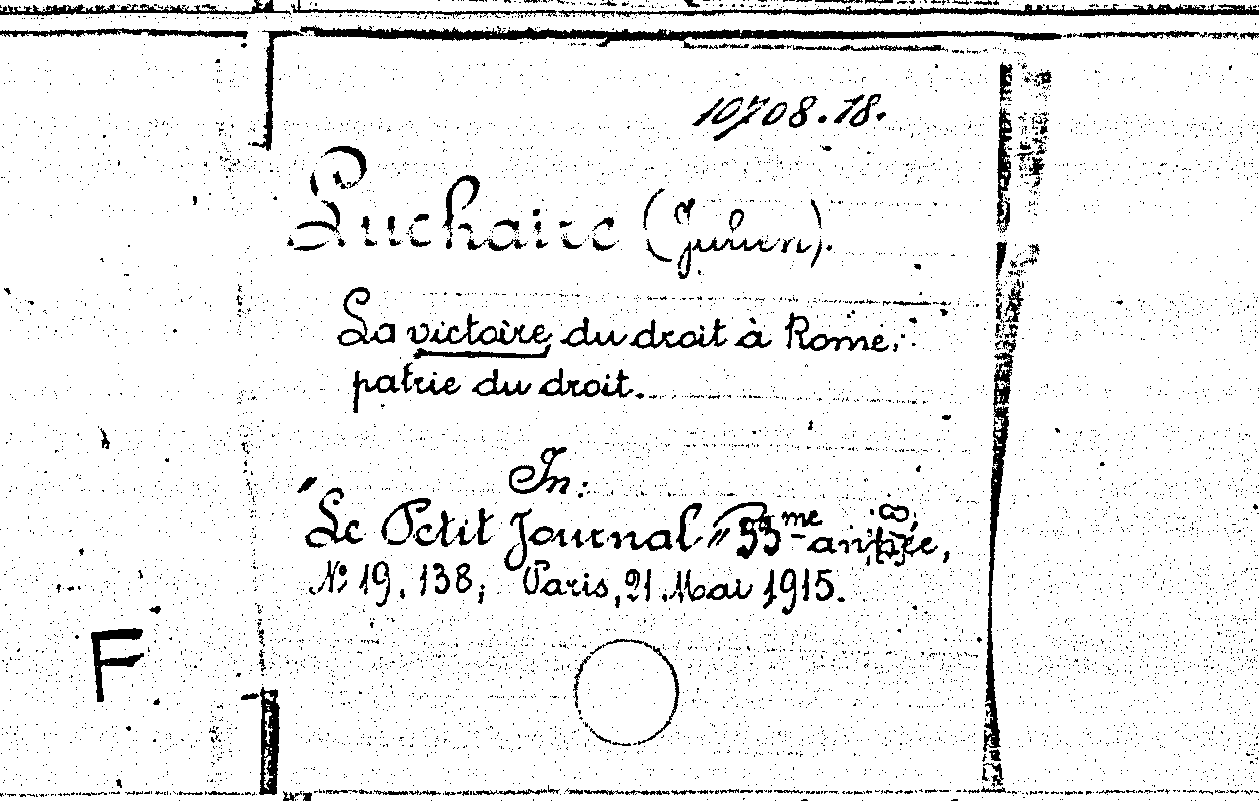 10708.18.
Luchaire (Julien).
La victoire du droit à Rome,
patrie du droit.
In:
"Le Petit Journal" 53me année,
No 19.138; Paris, 21 Mai 1915.
F